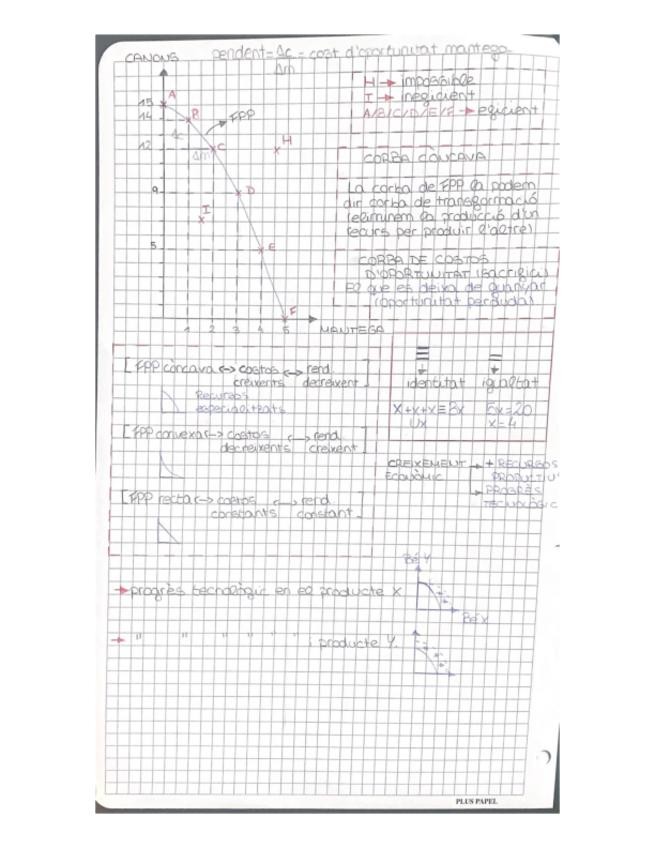 CANONS
pendent = Δc = cost d'oportunitat mantega
Δm
H → impossible
I → ineficient
A/B/C/D/E/F → eficient
15
A
14
B
FPP
Δc
12
C
Δm
H
CORBA CÒNCAVA
9
D
La corba de FPP la podem
dir corba de transformació
(eliminem la producció d'un
recurs per produir l'altre)
I
5
E
CORBA DE COSTOS
D'OPORTUNITAT (sacrifici)
El que es deixa de guanyar
(oportunitat perduda)
F
1 2 3 4 5
MANTEGA
[FPP còncava ↔ costos ↔ rend.
creixents decreixent]
Recursos
especialitzats
≡ =
identitat igualtat
x+x+x ≡ 3x 5x=20
x=4
[FPP convexa ↔ costos ↔ rend.
decreixents creixent]
CREIXEMENT → + RECURSOS
ECONÒMIC PRODUCTIUS
→ PROGRÉS
TECNOLÒGIC
[FPP recta ↔ costos ↔ rend.
constants constant]
Bé Y
→ progrés tecnològic en el producte X
Bé X
→ " " " " " i producte Y.
PLUS PAPEL